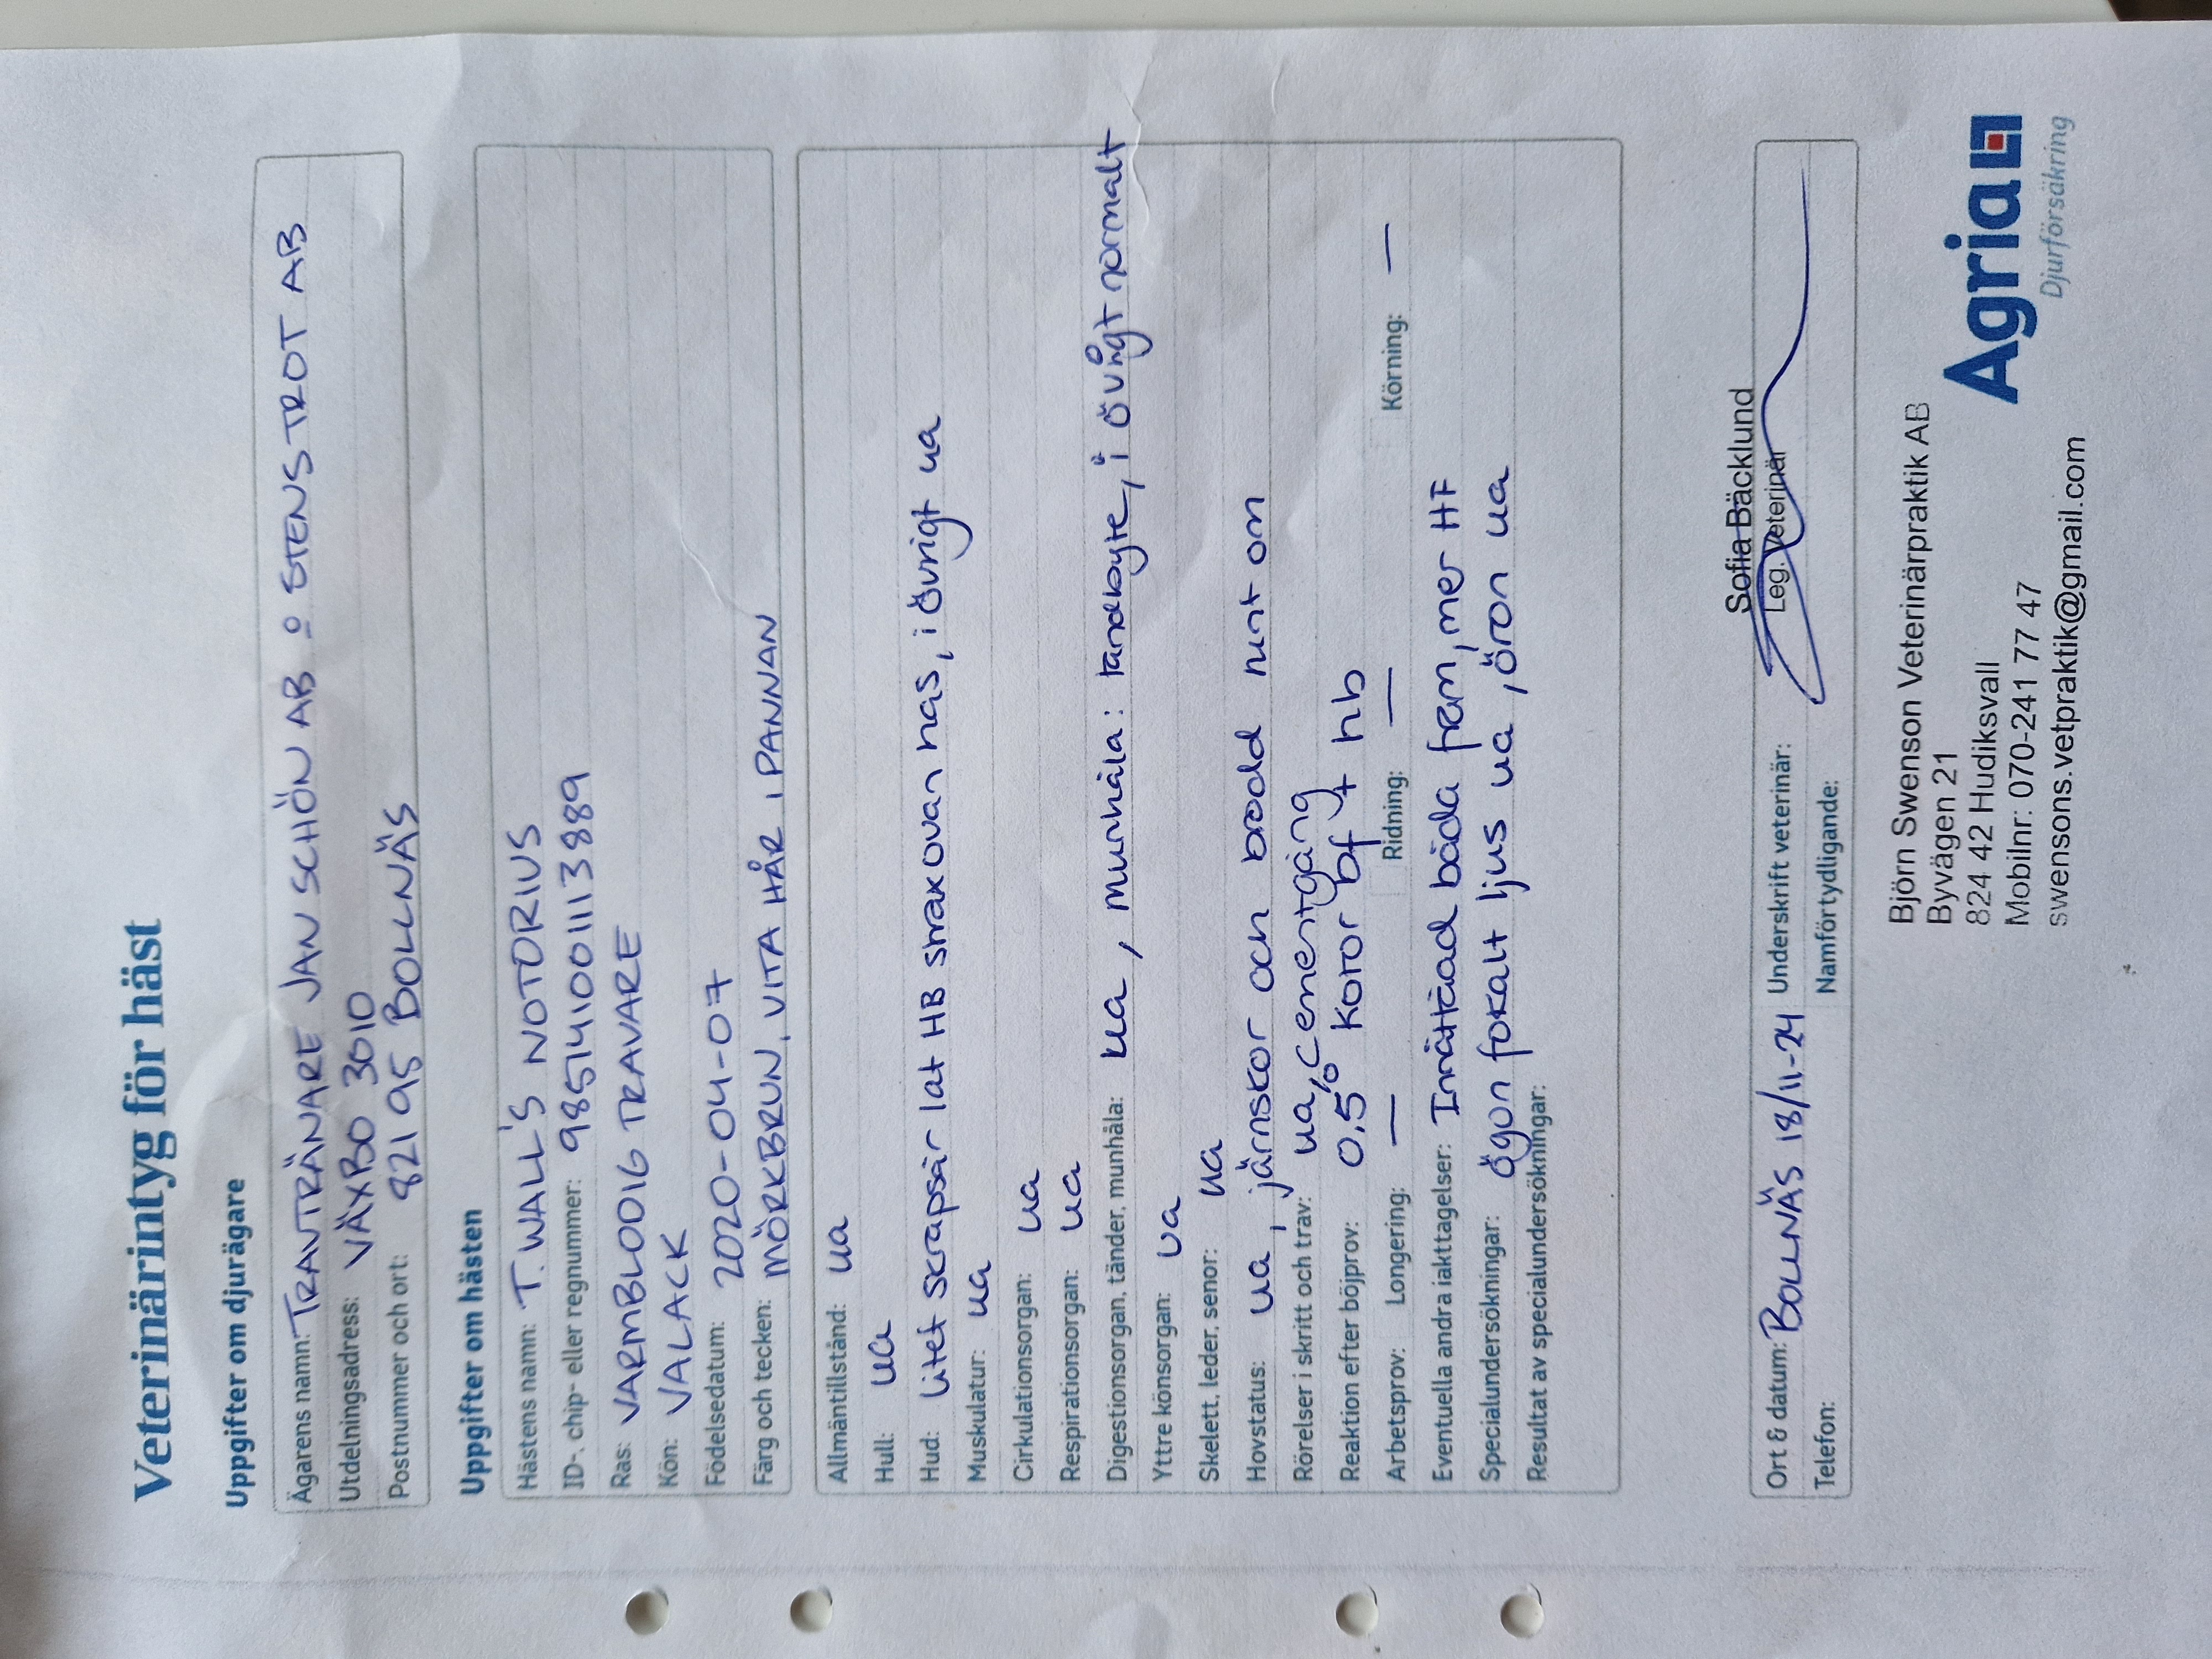 Veterinärintyg för häst
Uppgifter om djurägare
Ägarens namn: TRAVTRÄNARE JAN SCHÖN AB o STENS TROT AB
Utdelningsadress: VÄXBO 3010
Postnummer och ort: 821 95 BOLLNÄS
Uppgifter om hästen
Hästens namn: T. WALL'S NOTORIUS
ID-, chip- eller regnummer: 985141001113889
Ras: VARMBLODIG TRAVARE
Kön: VALACK
Födelsedatum: 2020-04-07
Färg och tecken: MÖRKBRUN, VITA HÅR I PANNAN
Allmäntillstånd: ua
Hull: ua
Hud: litet skrapsår lat HB strax ovan has, i övrigt ua
Muskulatur: ua
Cirkulationsorgan: ua
Respirationsorgan: ua
Digestionsorgan, tänder, munhåla: ua, munhåla: tandbyte, i övrigt normalt
Yttre könsorgan: ua
Skelett, leder, senor: ua
Hovstatus: ua, järnskor och brodd runt om
Rörelser i skritt och trav: ua, cementgång
Reaktion efter böjprov: 0,5° kotor bf + hb
Arbetsprov: Longering: — Ridning: — Körning: —
Eventuella andra iakttagelser: Inåttåad båda fram, mer HF
Specialundersökningar: ögon fokalt ljus ua, öron ua
Resultat av specialundersökningar:
Sofia Bäcklund
Leg. Veterinär
Ort & datum: BOLLNÄS 18/11-24 Underskrift veterinär:
Telefon: Namförtydligande:
Björn Swenson Veterinärpraktik AB
Byvägen 21
824 42 Hudiksvall
Mobilnr: 070-241 77 47
swensons.vetpraktik@gmail.com
Agria
Djurförsäkring